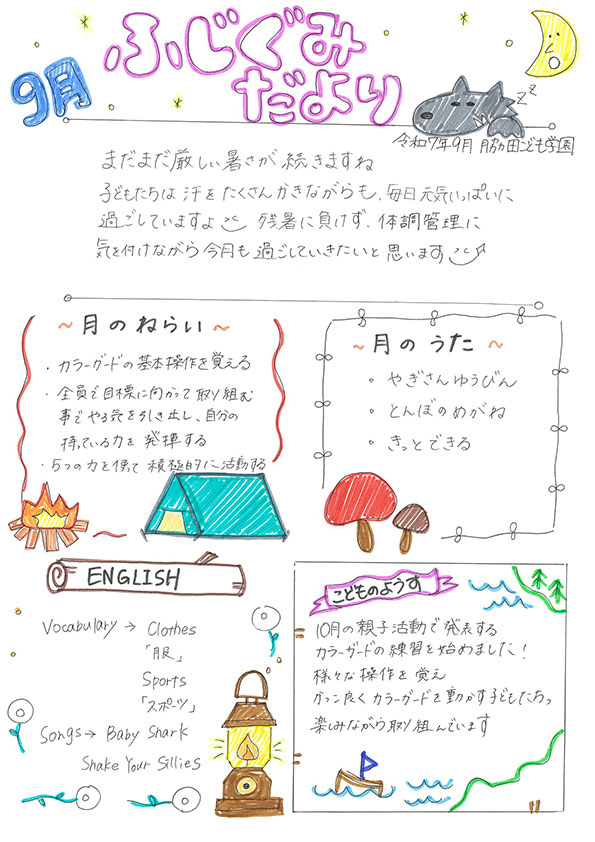 9月
ふじぐみ
だより
zz
令和7年9月 脇ヶ田こども学園
まだまだ厳しい暑さが続きますね
子どもたちは汗をたくさんかきながらも、毎日元気いっぱいに
過ごしていますよ 残暑に負けず、体調管理に
気を付けながら今月も過ごしていきたいと思います
~月のねらい~
・カラーガードの基本操作を覚える
・全員で目標に向かって取り組む
事でやる気を引き出し、自分の
持っている力を発揮する
・5つの力を使って積極的に活動する
~月のうた~
・やぎさんゆうびん
・とんぼのめがね
・きっとできる
ENGLISH
Vocabulary → Clothes
「服」
Sports
「スポーツ」
Songs → Baby Shark
Shake Your Sillies
こどものようす
10月の親子活動で発表する
カラーガードの練習を始めました!
様々な操作を覚え
かっこ良くカラーガードを動かす子どもたちっ
楽しみながら取り組んでいます